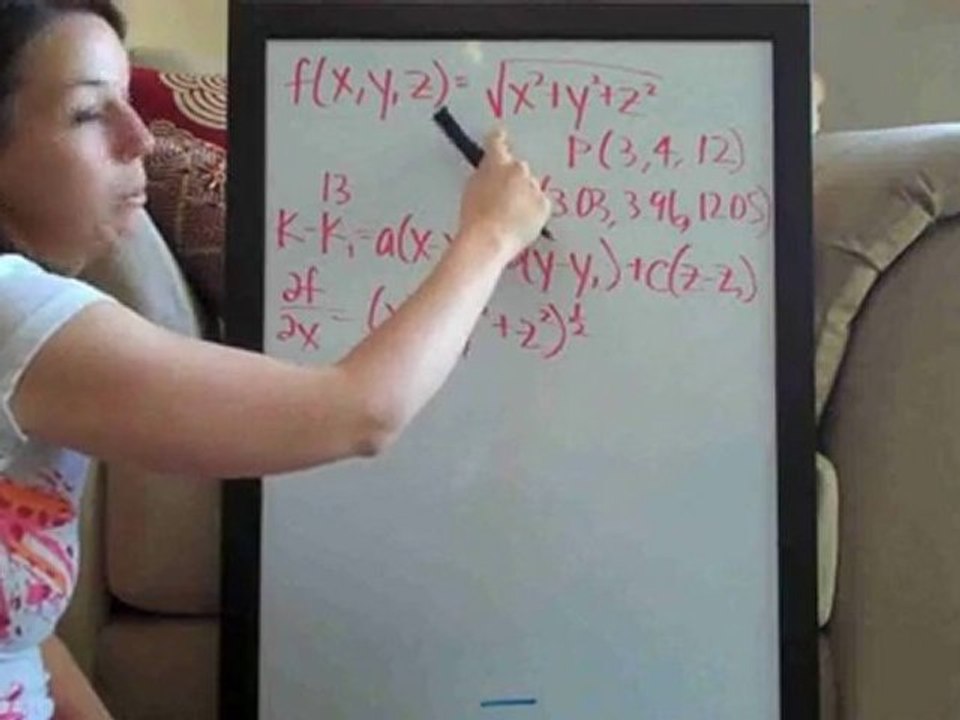 f(x,y,z)=√x²+y²+z²
P(3,4,12)
(3.03,3.96,12.05)
13
K-K₁=a(x- (y-y₁)+c(z-z₁)
∂f/∂x = (x +z²)^½